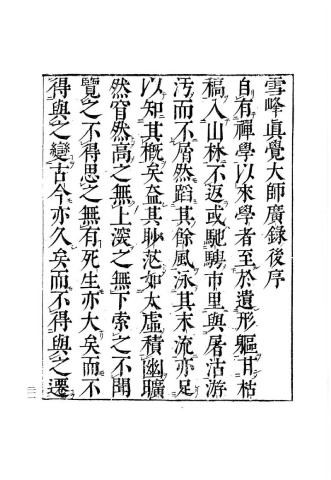 雪峰眞覺大師廣錄後序
自有禪學以來學者至於遺形軀甘枯
稿入山林不返或馳騁市里與屠沽游
汚而不屑然蹈其餘風泳其末流亦足
以知其槪矣益其眇茫如太虛積幽曠
然窅然高之無上深之無下索之不聞
覽之不得思之無有死生亦大矣而不
得與之變古今亦久矣而不得與之遷